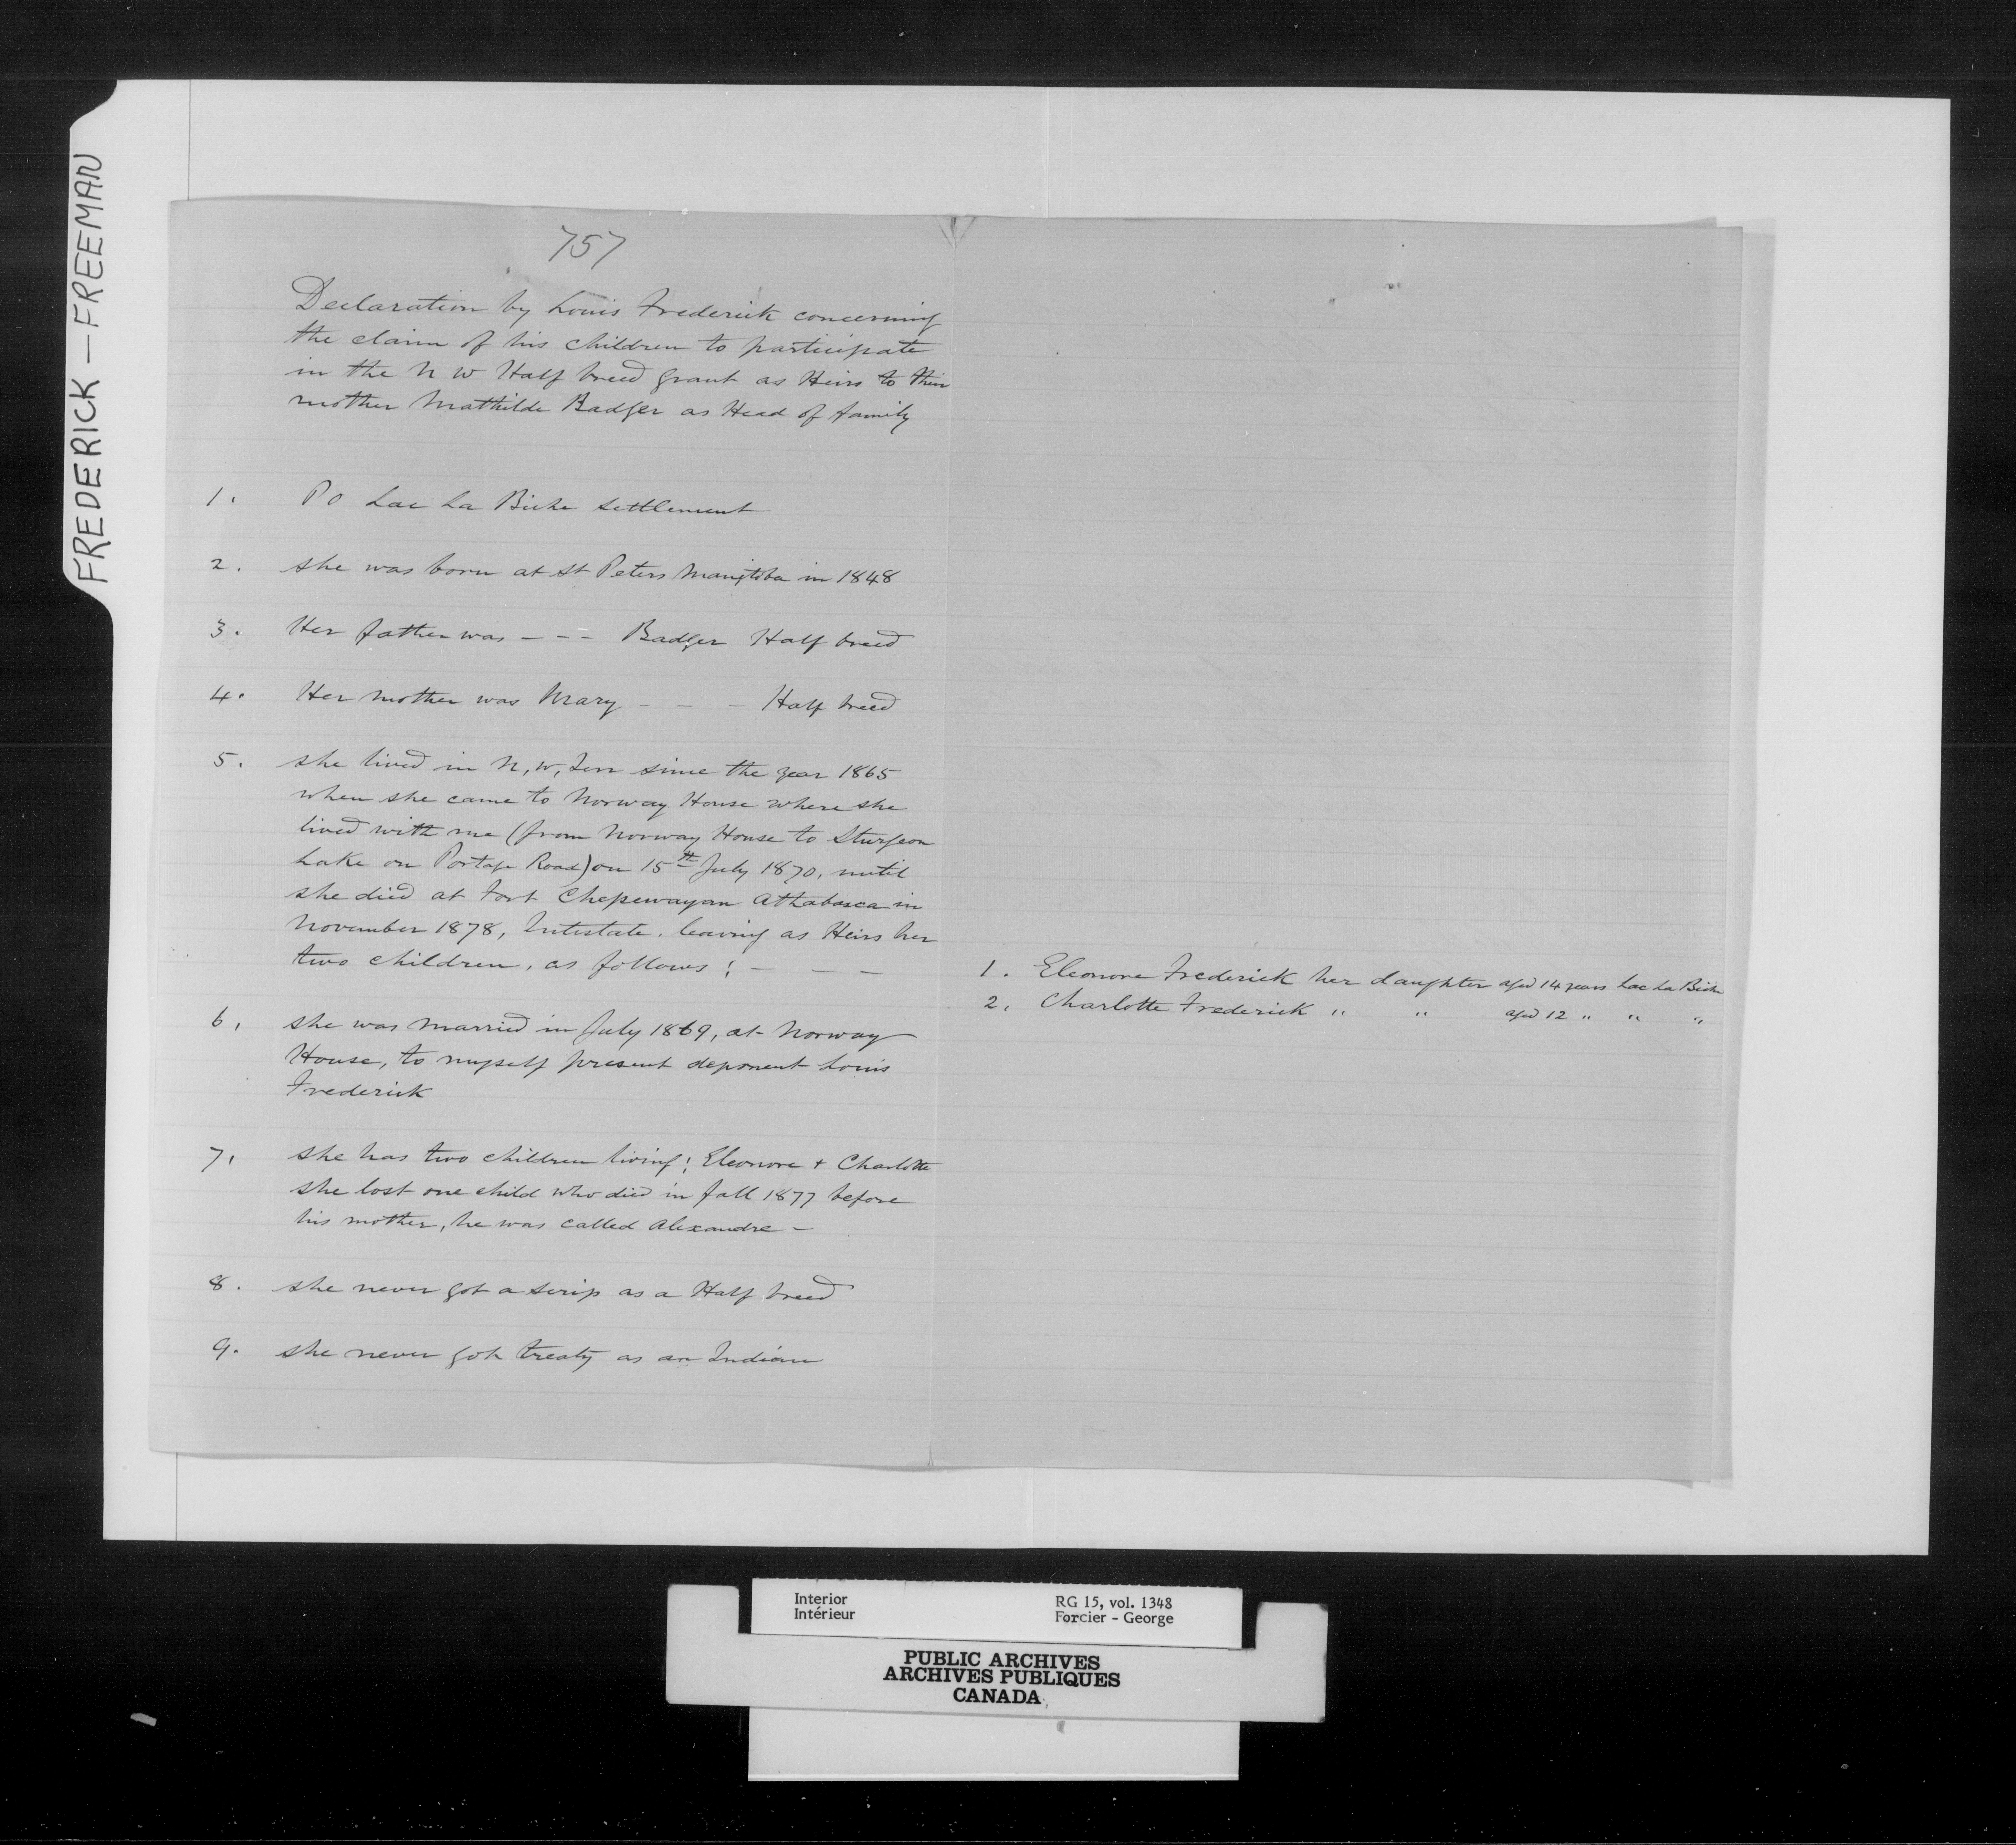 FREDERICK — FREEMAN
757
Declaration by Louis Frederick concerning
the claim of his children to participate
in the N W Half breed grant as Heirs to their
mother Mathilde Badger as Head of family
1. P O Lac La Biche settlement
2. she was born at St Peters Manitoba in 1848
3. Her father was - - - Badger Half breed
4. Her mother was Mary - - - Half breed
5. she lived in N, W, Terr since the year 1865
when she came to Norway House where she
lived with me (from Norway House to Sturgeon
Lake on Portage Road) on 15th July 1870, until
she died at Fort Chepewayan Athabasca in
November 1878, Intestate, leaving as Heirs her
two children, as follows : - - -
1. Eleonore Frederick her daughter aged 14 years Lac La Biche
2. Charlotte Frederick " " aged 12 " " "
6, she was married in July 1869, at Norway
House, to myself present deponent Louis
Frederick
7, she has two children living ; Eleonore + Charlotte
she lost one child who died in fall 1877 before
his mother, he was called Alexandre -
8. she never got a scrip as a Half breed
9. she never got treaty as an Indian
Interior RG 15, vol. 1348
Intérieur Forcier - George
PUBLIC ARCHIVES
ARCHIVES PUBLIQUES
CANADA